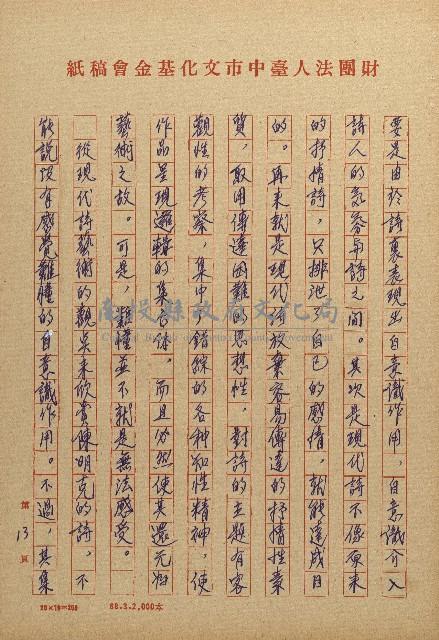 財團法人臺中市文化基金會稿紙
要是由於詩裏表現出自意識作用，自意識介入
詩人的氣容與詩之间。其次是現代詩不像原来
的抒情詩，只排泄了自己的感情，就能達成目
的。再来就是現代詩放棄容易傳達的抒情性素
質，取用傳達困難的思想性，對詩的主題有客
觀性的考察，集中錯綜的各种知性精神，使
作品呈現邏輯的集合体，而且必然使其還元为
藝術之故。可是，難懂並不就是無法感受。
從現代詩藝術的觀点来欣赏陳明克的詩，不
能說没有感覺難懂的自意識作用。不過，其集
第13頁
20×10=200
88.3.2,000本
南投縣政府文化局